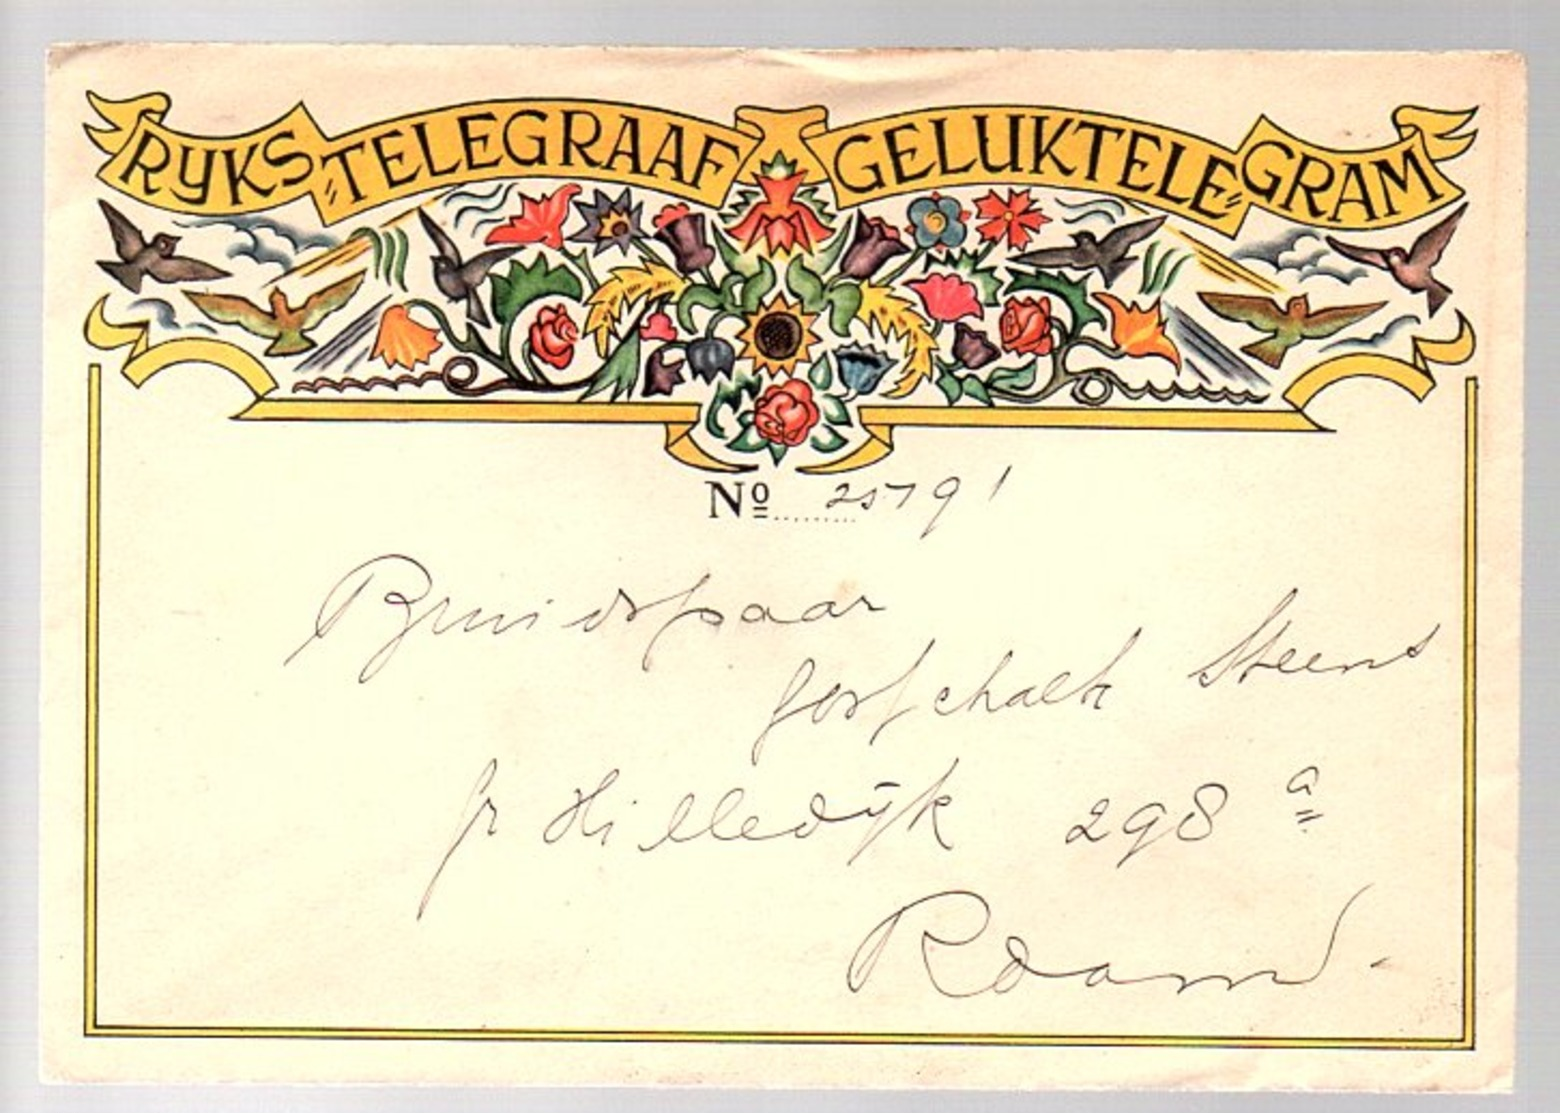 RYKSTELEGRAAF GELUKTELEGRAM
No 25791
Bruidspaar
Gosschalk Steens
pr Hilledijk 298 a
Rdam